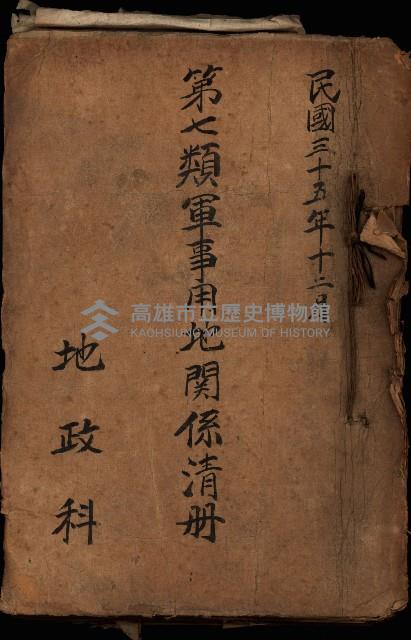 民國三十五年十二月
第七類軍事用地関係清册
地政科
高雄市立歷史博物館
KAOHSIUNG MUSEUM OF HISTORY